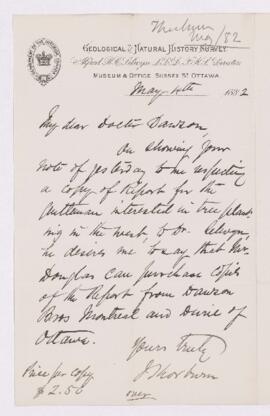 May/82
GEOLOGICAL & NATURAL HISTORY SURVEY
Alfred R.C. Selwyn L.L.D. F.R.S. Director
MUSEUM & OFFICE SUSSEX ST. OTTAWA.
May 4th 1882
My dear Doctor Dawson,
On showing your
note of yesterday to me respecting
a copy of Report for the
Gentleman interested in tree plant-
ing in the west, to Dr. Selwyn,
he desires me to say that Mr.
Douglas can purchase copies
of the Report from Dawson
Bros Montreal and Durie of
Ottawa.
Yours truly
Price per copy
$2.50
over